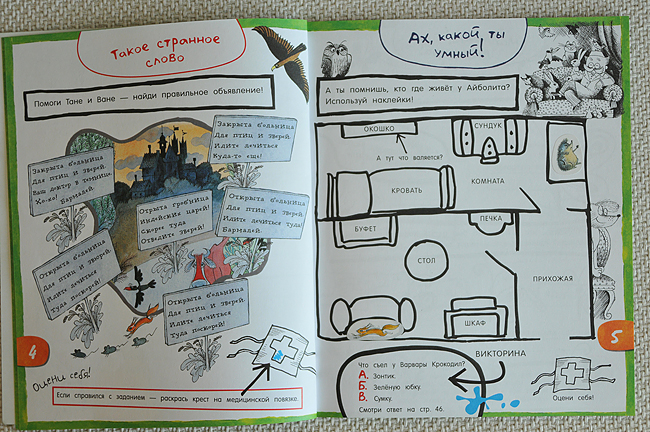 Такое странное
слово
Помоги Тане и Ване — найди правильное объявление!
Закрыта больница
Для птиц и зверей.
Идите лечиться
Куда-то ещё!
Закрыта больница
Для птиц и зверей.
Ваш доктор в темнице.
Хо-хо! Бармалей.
Открыта больница
Для птиц и зверей.
Идите лечиться туда!
Бармалей.
Отрыта гробница
Индейских царей!
Скорее туда
Отведите зверей!
Открыта больница
Для птиц и зверей.
Идите лечиться
Туда поскорей!
Открыта больница
Для птиц и зверей.
Идите лечиться
Туда поскорей!
4
Оцени себя!
Если справился с заданием — раскрась крест на медицинской повязке.
Ах, какой ты
умный!
А ты помнишь, кто где живёт у Айболита?
Используй наклейки!
ОКОШКО
СУНДУК
А тут что валяется?
КРОВАТЬ
КОМНАТА
БУФЕТ
ПЕЧКА
СТОЛ
ПРИХОЖАЯ
ШКАФ
5
ВИКТОРИНА
Что съел у Варвары Крокодил?
А. Зонтик.
Б. Зелёную юбку.
В. Сумку.
Смотри ответ на стр. 46.
Оцени себя!